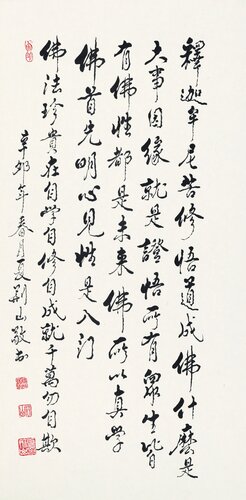 釋迦牟尼苦修悟道成佛什麼是
大事因緣就是證悟所有眾生皆
有佛性都是未来佛所以真学
佛首先明心見性是入门
佛法珍貴在自学自修自成就千萬勿自欺
辛卯年春月夏荆山敬书